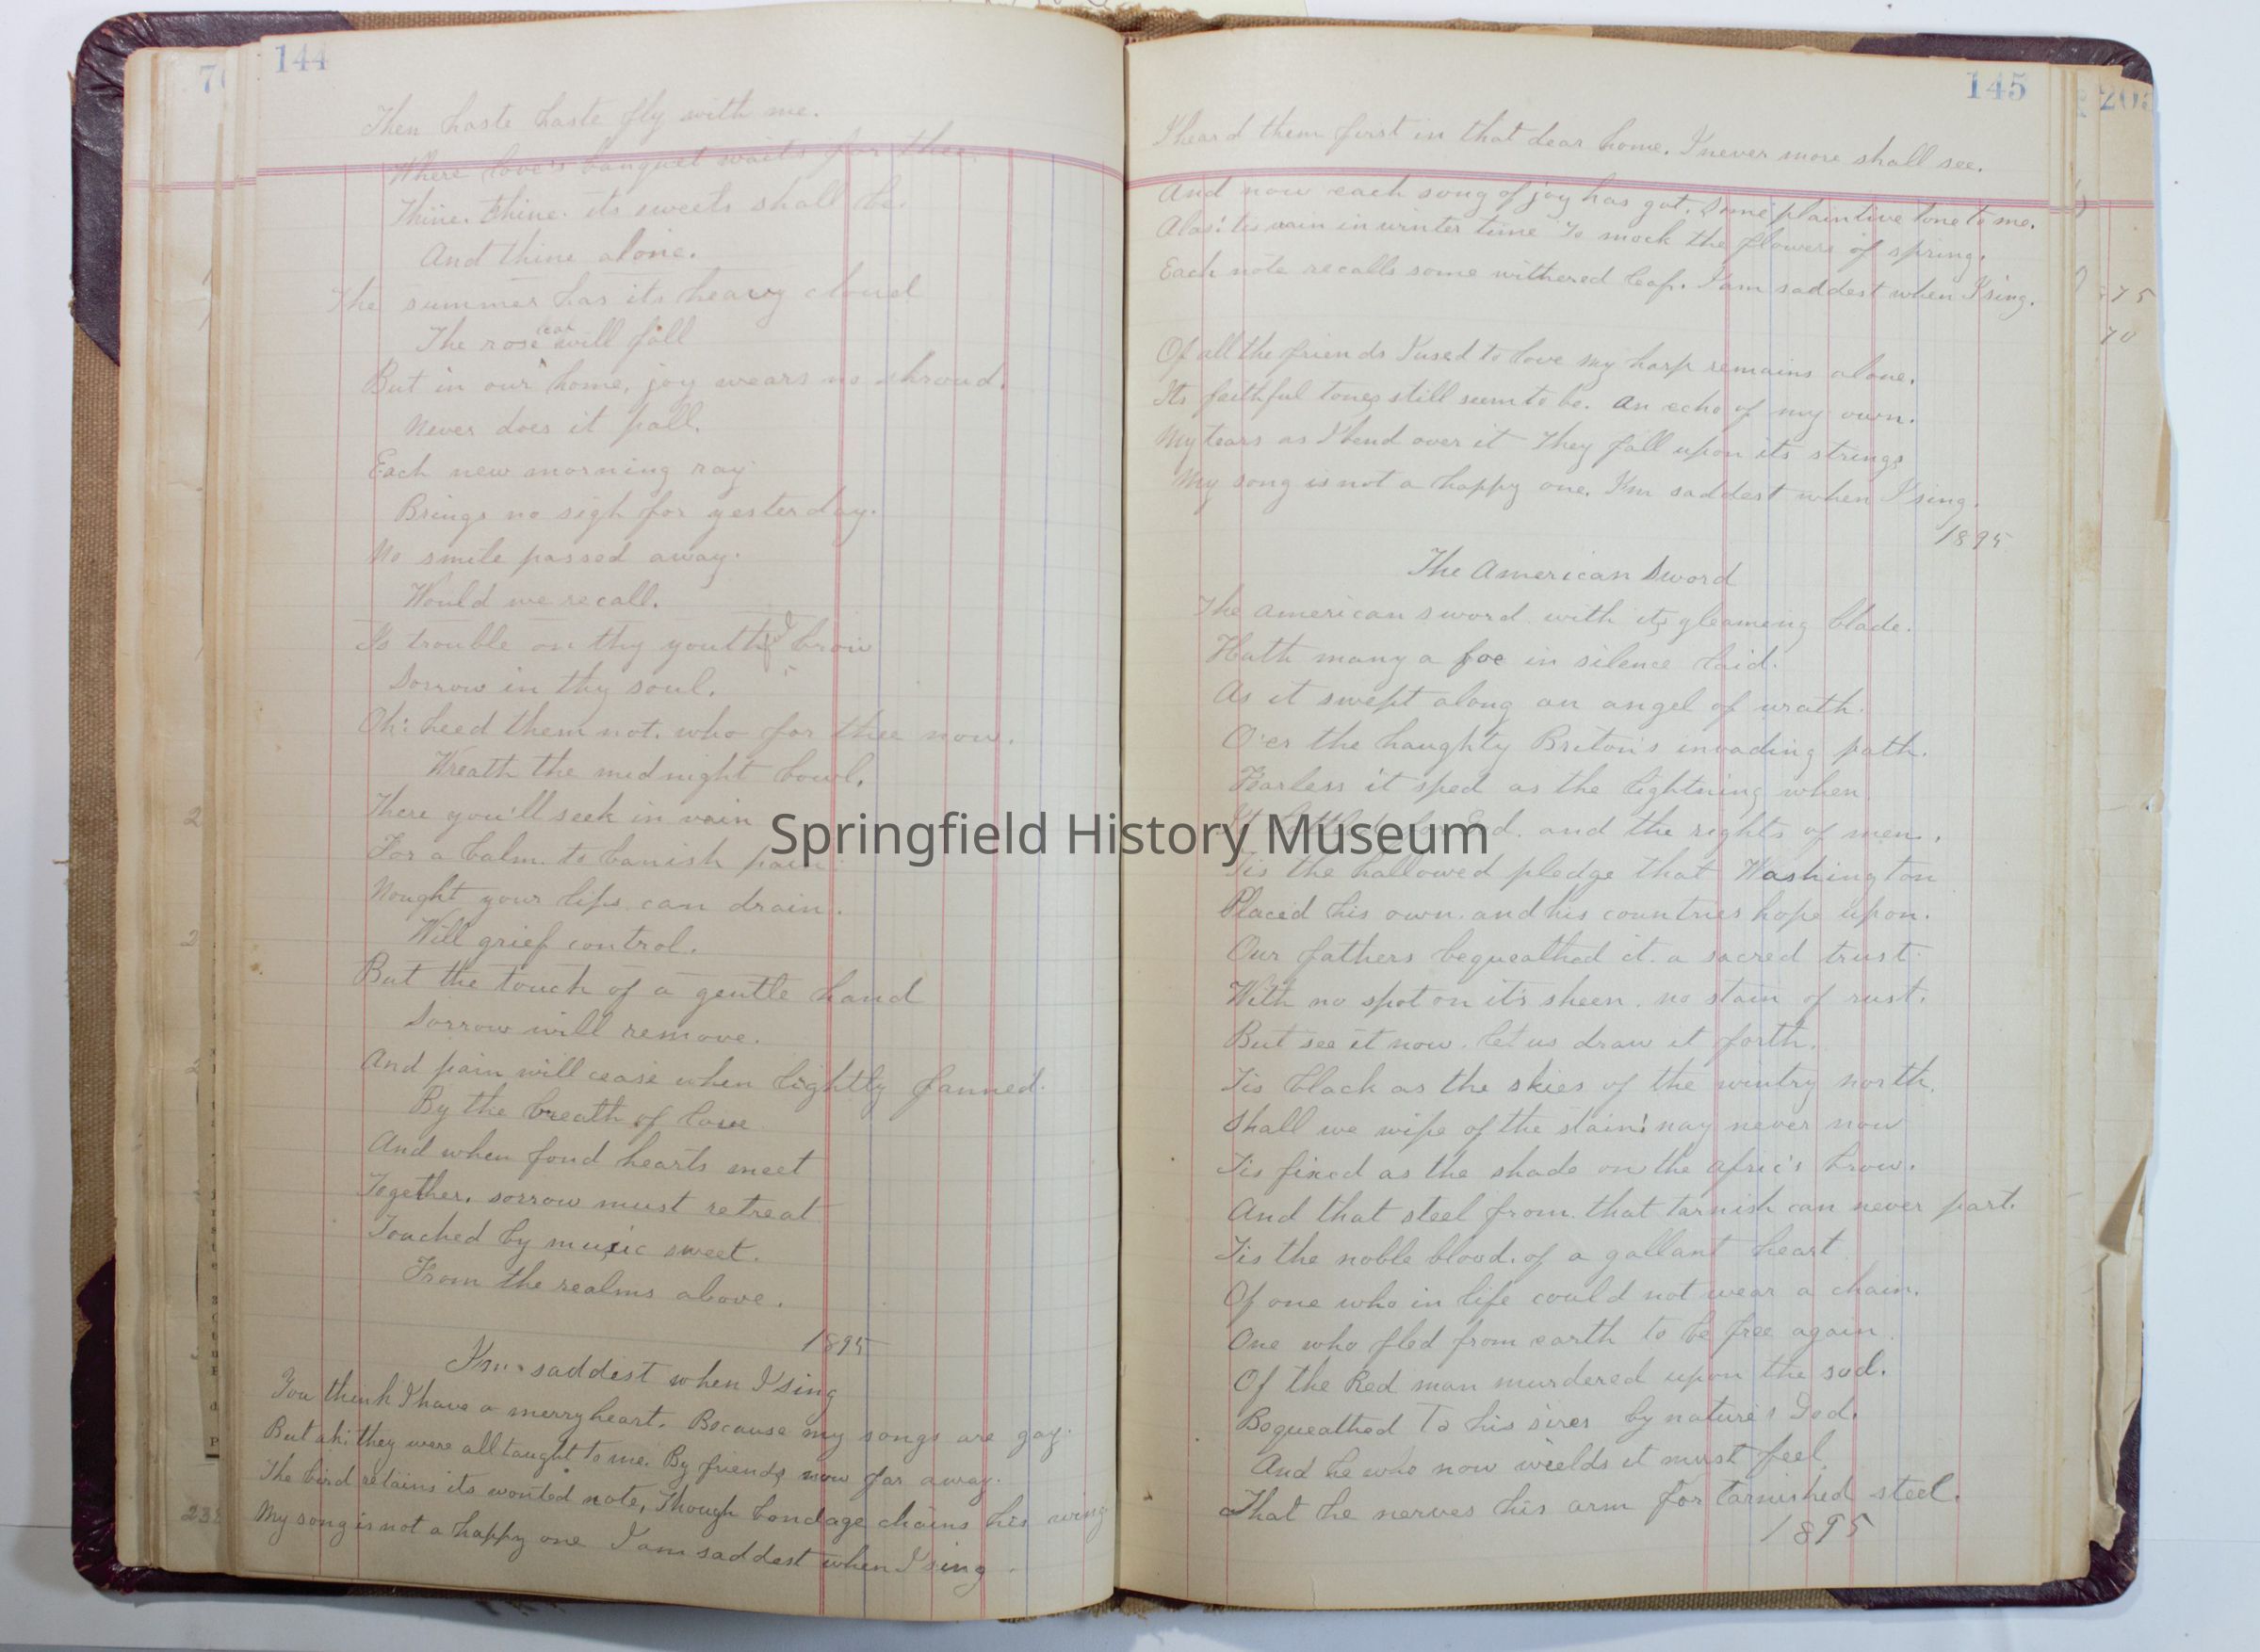 144
Then haste haste fly with me.
Where love's banquet waits for thee.
Thine. thine. its sweets shall be.
And thine alone.
The summer has its heavy cloud
The rose leaf will fall
But in our home, joy wears no shroud.
Never does it pall.
Each new morning ray
Brings no sigh for yesterday.
No smile passed away.
Would we recall.
Is trouble on thy youthful brow
Sorrow in thy soul.
Oh: heed them not. who for thee now.
Wreath the midnight bowl.
There you'll seek in vain
For a balm. to banish pain.
Nought your lips can drain.
Will grief control.
But the touch of a gentle hand
Sorrow will remove.
And pain will cease when lightly fanned.
By the breath of love
And when fond hearts meet
Together. sorrow must retreat
Touched by music sweet.
From the realms above.
1895
I'm saddest when I sing
You think I have a merry heart. Because my songs are gay.
But ah: they were all taught to me. By friends now far away.
The bird retains its wonted note, Though bondage chains his wing
My song is not a happy one I am saddest when I sing
145
I heard them first in that dear home. I never more shall see.
And now each song of joy has got. Some plaintive tone to me.
Alas! tis vain in winter time To mock the flowers of spring.
Each note recalls some withered leaf. I am saddest when I sing.
Of all the friends I used to love my harp remains alone.
Its faithful tones still seem to be. an echo of my own.
My tears as I bend over it They fall upon its strings
My song is not a happy one. I'm saddest when I sing.
1895
The American Sword
The american sword with its gleaming blade.
Hath many a foe in silence laid.
As it swept along an angel of wrath.
O'er the haughty Briton's invading path.
Fearless it sped as the lightning when
It battled for God. and the rights of men.
Tis the hallowed pledge that Washington
Placed his own. and his countries hope upon.
Our fathers bequeathed it. a sacred trust.
With no spot on it's sheen. no stain of rust.
But see it now. let us draw it forth.
Tis black as the skies of the wintry north.
Shall we wipe of the stain! nay never now
Tis fixed as the shade on the afric's brow.
And that steel from that tarnish can never part.
Tis the noble blood. of a gallant heart
Of one who in life could not wear a chain.
One who fled from earth to be free again
Of the Red man murdered upon the sod.
Bequeathed To his sires by nature's God.
And he who now wields it must feel
That he nerves his arm for tarnished steel.
1895
Springfield History Museum